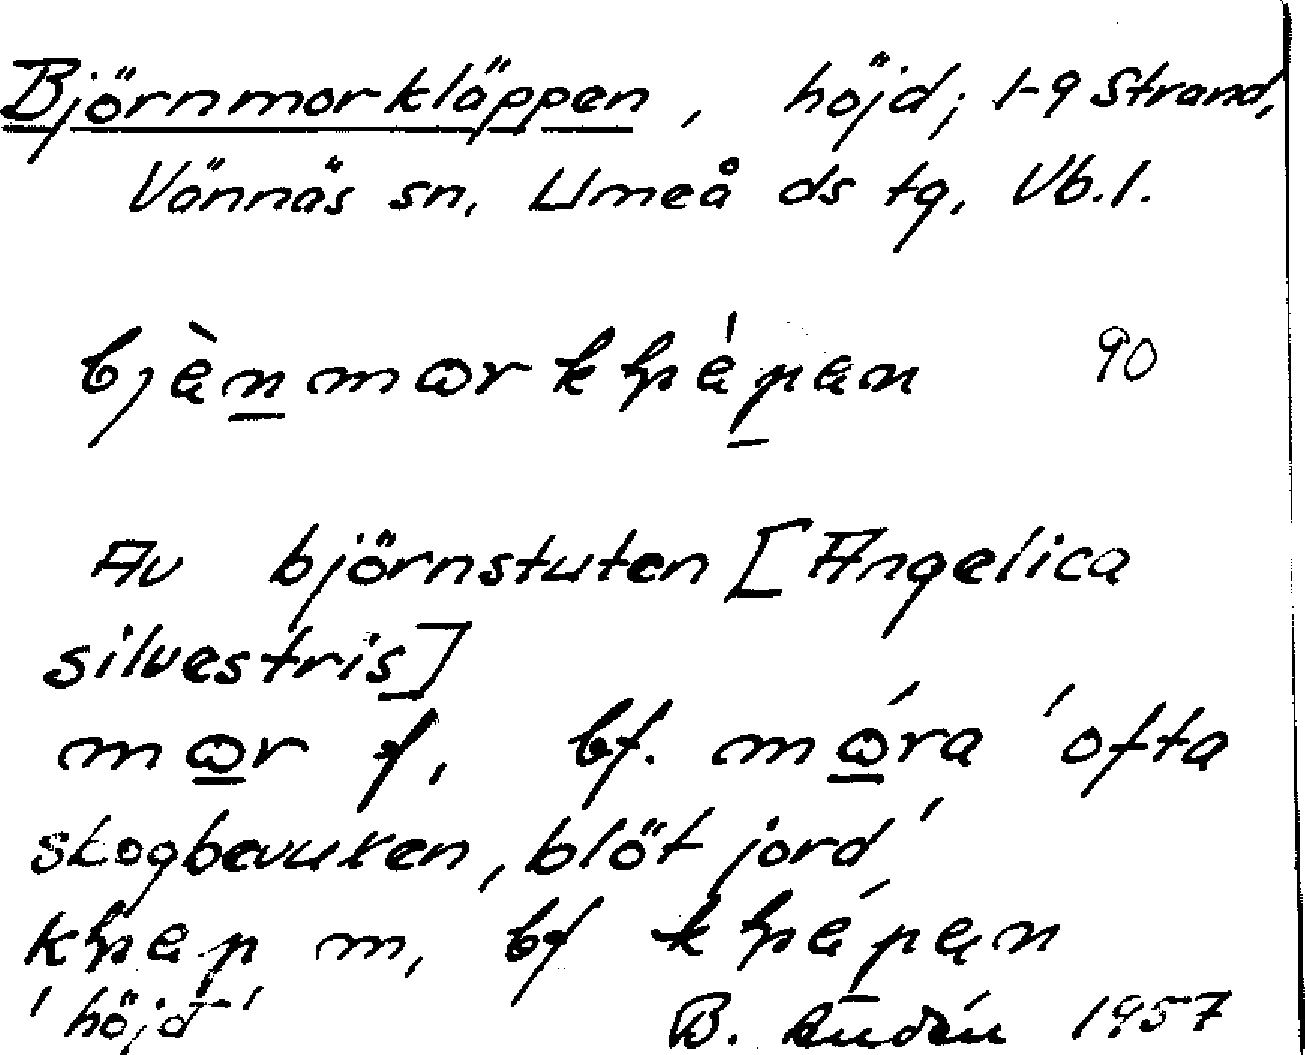 Björnmorkläppen, höjd; 1-9 Strand,
Vännäs sn, Umeå ds tg, Vb.l.
90
Av björnstuten [Angelica
silvestris]
f, bf. 'ofta
skogbevuxen, blöt jord'
m, bf
'höjd' B. Rudén 1957